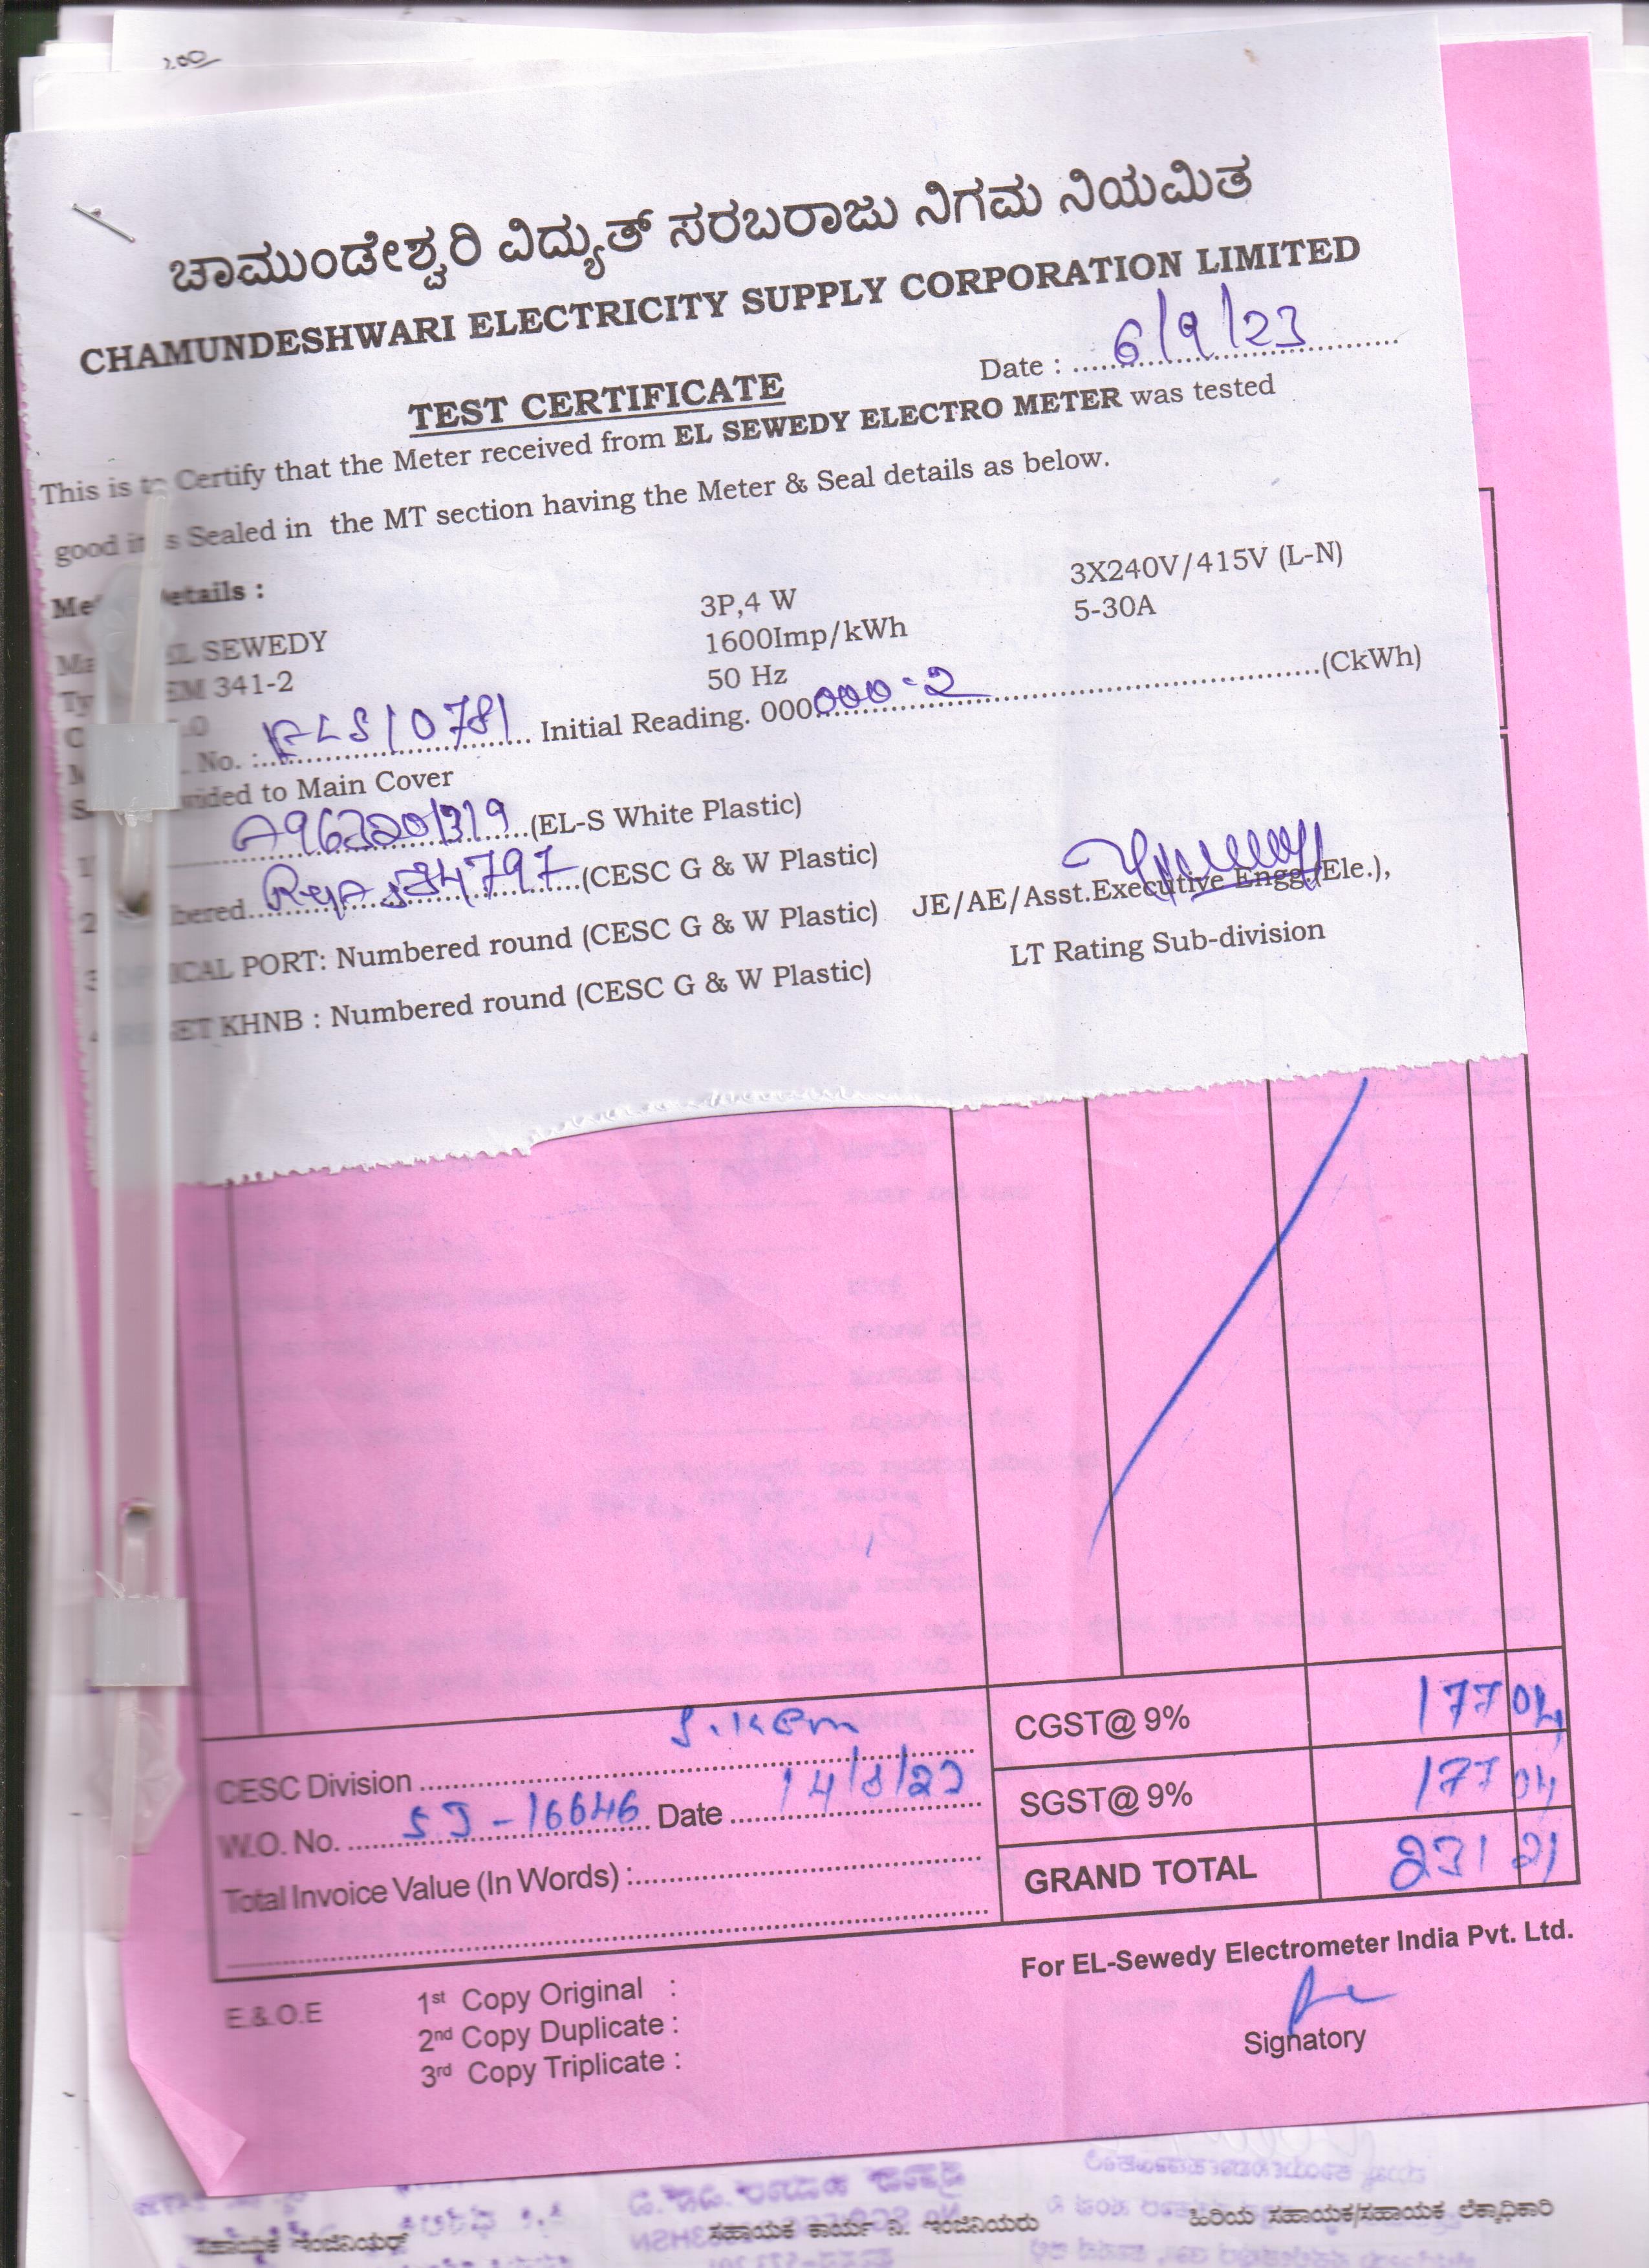 200/-
ಚಾಮುಂಡೇಶ್ವರಿ ವಿದ್ಯುತ್ ಸರಬರಾಜು ನಿಗಮ ನಿಯಮಿತ
CHAMUNDESHWARI ELECTRICITY SUPPLY CORPORATION LIMITED
Date : 6/9/23
TEST CERTIFICATE
This is to Certify that the Meter received from EL SEWEDY ELECTRO METER was tested
good it is Sealed in the MT section having the Meter & Seal details as below.
Details :
3P,4 W 3X240V/415V (L-N)
EL SEWEDY 1600Imp/kWh 5-30A
EM 341-2 50 Hz
.0
No. : ELS10781 Initial Reading. 000000.2 (CkWh)
to Main Cover
A962201319 (EL-S White Plastic)
bered 84797 (CESC G & W Plastic)
ICAL PORT: Numbered round (CESC G & W Plastic) JE/AE/Asst.Executive Engg.(Ele.),
ET KHNB : Numbered round (CESC G & W Plastic) LT Rating Sub-division
CGST@ 9% 177 04
CESC Division
SGST@ 9% 177 04
W.O. No. SJ-16646 Date 14/8/23
Total Invoice Value (In Words) :
GRAND TOTAL 231 21
For EL-Sewedy Electrometer India Pvt. Ltd.
E.& O.E 1st Copy Original :
2nd Copy Duplicate :
3rd Copy Triplicate :
Signatory
ಸಹಾಯಕ ಇಂಜಿನಿಯರ್ ಸಹಾಯಕ ಕಾರ್ಯ ನಿ. ಇಂಜಿನಿಯರು ಹಿರಿಯ ಸಹಾಯಕ/ಸಹಾಯಕ ಲೆಕ್ಕಾಧಿಕಾರಿ